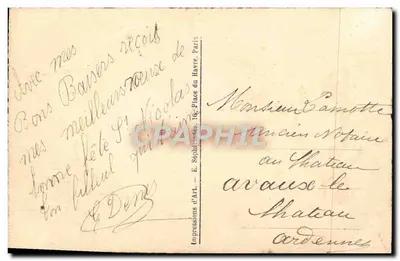 Avec mes
Bons Baisers reçois
mes meilleurs voeux de
bonne fête St Nicolas
ton filleul
E Denis
Impressions d'Art. — E. 16, Place du Havre, Paris
CARTOPHILIE
Monsieur Lamotte
ancien Notaire
au Chateau
avaux-le
Chateau
ardennes